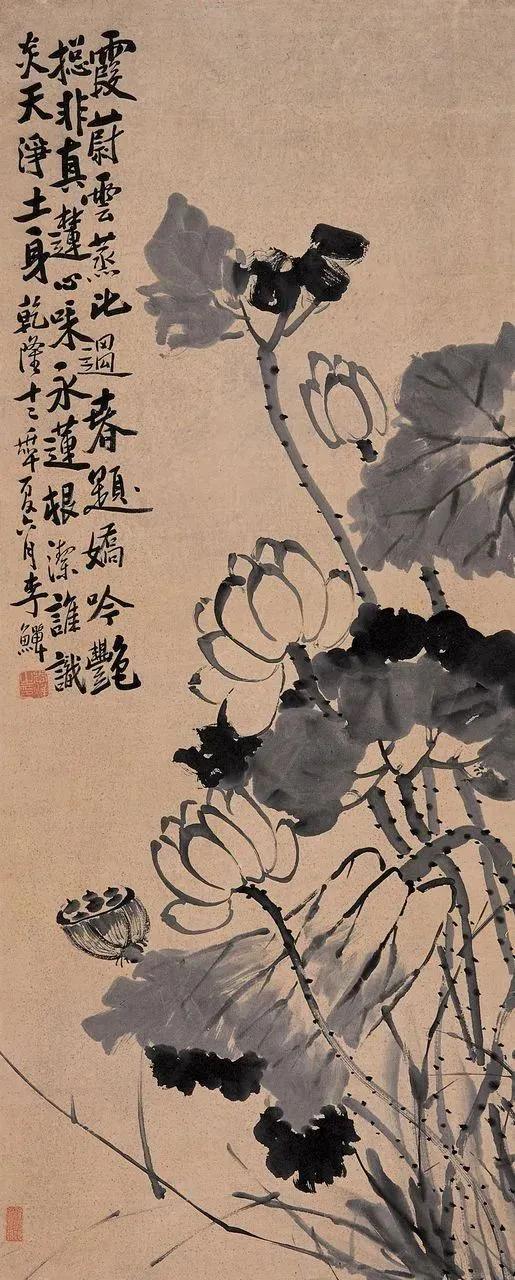 霞蔚雲蒸比過春題嬌吟艷
摠非真蓮心味永蓮根潔誰識
炎天淨土身乾隆十二年夏六月李鱓